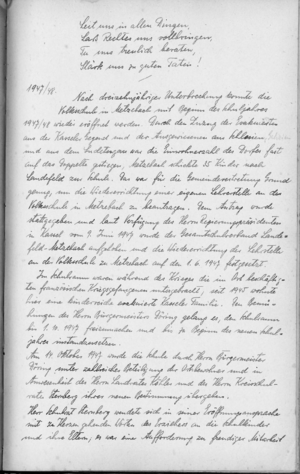 Leit uns in allen Dingen,
Lass Rechtes uns vollbringen,
Tu uns treulich beraten,
Stärk uns zu guten Taten!
1947/48.
Nach dreizehnjähriger Unterbrechung konnte die
Volksschule in Metzebach mit Beginn des Schuljahres
1947/48 wieder eröffnet werden. Durch den Zuzug der Evakuierten
aus der Kasseler Gegend und der Ausgewiesenen aus Schlesien
und aus dem Sudetengau war die Einwohnerzahl des Dorfes fast
auf das Doppelte gestiegen. Metzebach schickte 35 Kinder nach
Landefeld zur Schule. Das war für die Gemeindevertretung Grund
genug, um die Wiedererrichtung einer eigenen Lehrstelle an der
Volksschule in Metzebach zu beantragen. Dem Antrag wurde
stattgegeben und laut Verfügung des Herrn Regierungspräsidenten
in Kassel vom 9. Juni 1947 wurde der Gesamtschulverband Lande-
feld-Metzebach aufgehoben und die Wiedererrichtung der Lehrstelle
an der Volksschule zu Metzebach auf den 1. 6. 1947 festgesetzt.
Im Schulraum waren während des Krieges die im Ort beschäftig-
ten französischen Kriegsgefangenen untergebracht, seit 1945 wohnte
hier eine kinderreiche evakuierte Kasseler Familie. Den Bemü-
hungen des Herrn Bürgermeisters gelang es, den Schulraum
bis 1. 10. 1947 freizumachen und bis zu Beginn des neuen Schul-
jahres instandzusetzen.
Am 14. Oktober 1947 wurde die Schule durch Herrn Bürgermeister
unter zahlreicher Beteiligung der Ortsbewohner und in
Anwesenheit des Herrn Landrats und des Herrn Kreisschul-
rats Sternberg ihrer neuen Bestimmung übergeben.
Herr Schulrat Sternberg wandte sich in seiner Eröffnungsansprache
mit zu Herzen gehenden Worten des Ernstes an die Schulkinder
und ihre Eltern, es war eine Aufforderung zu freudiger Mitarbeit